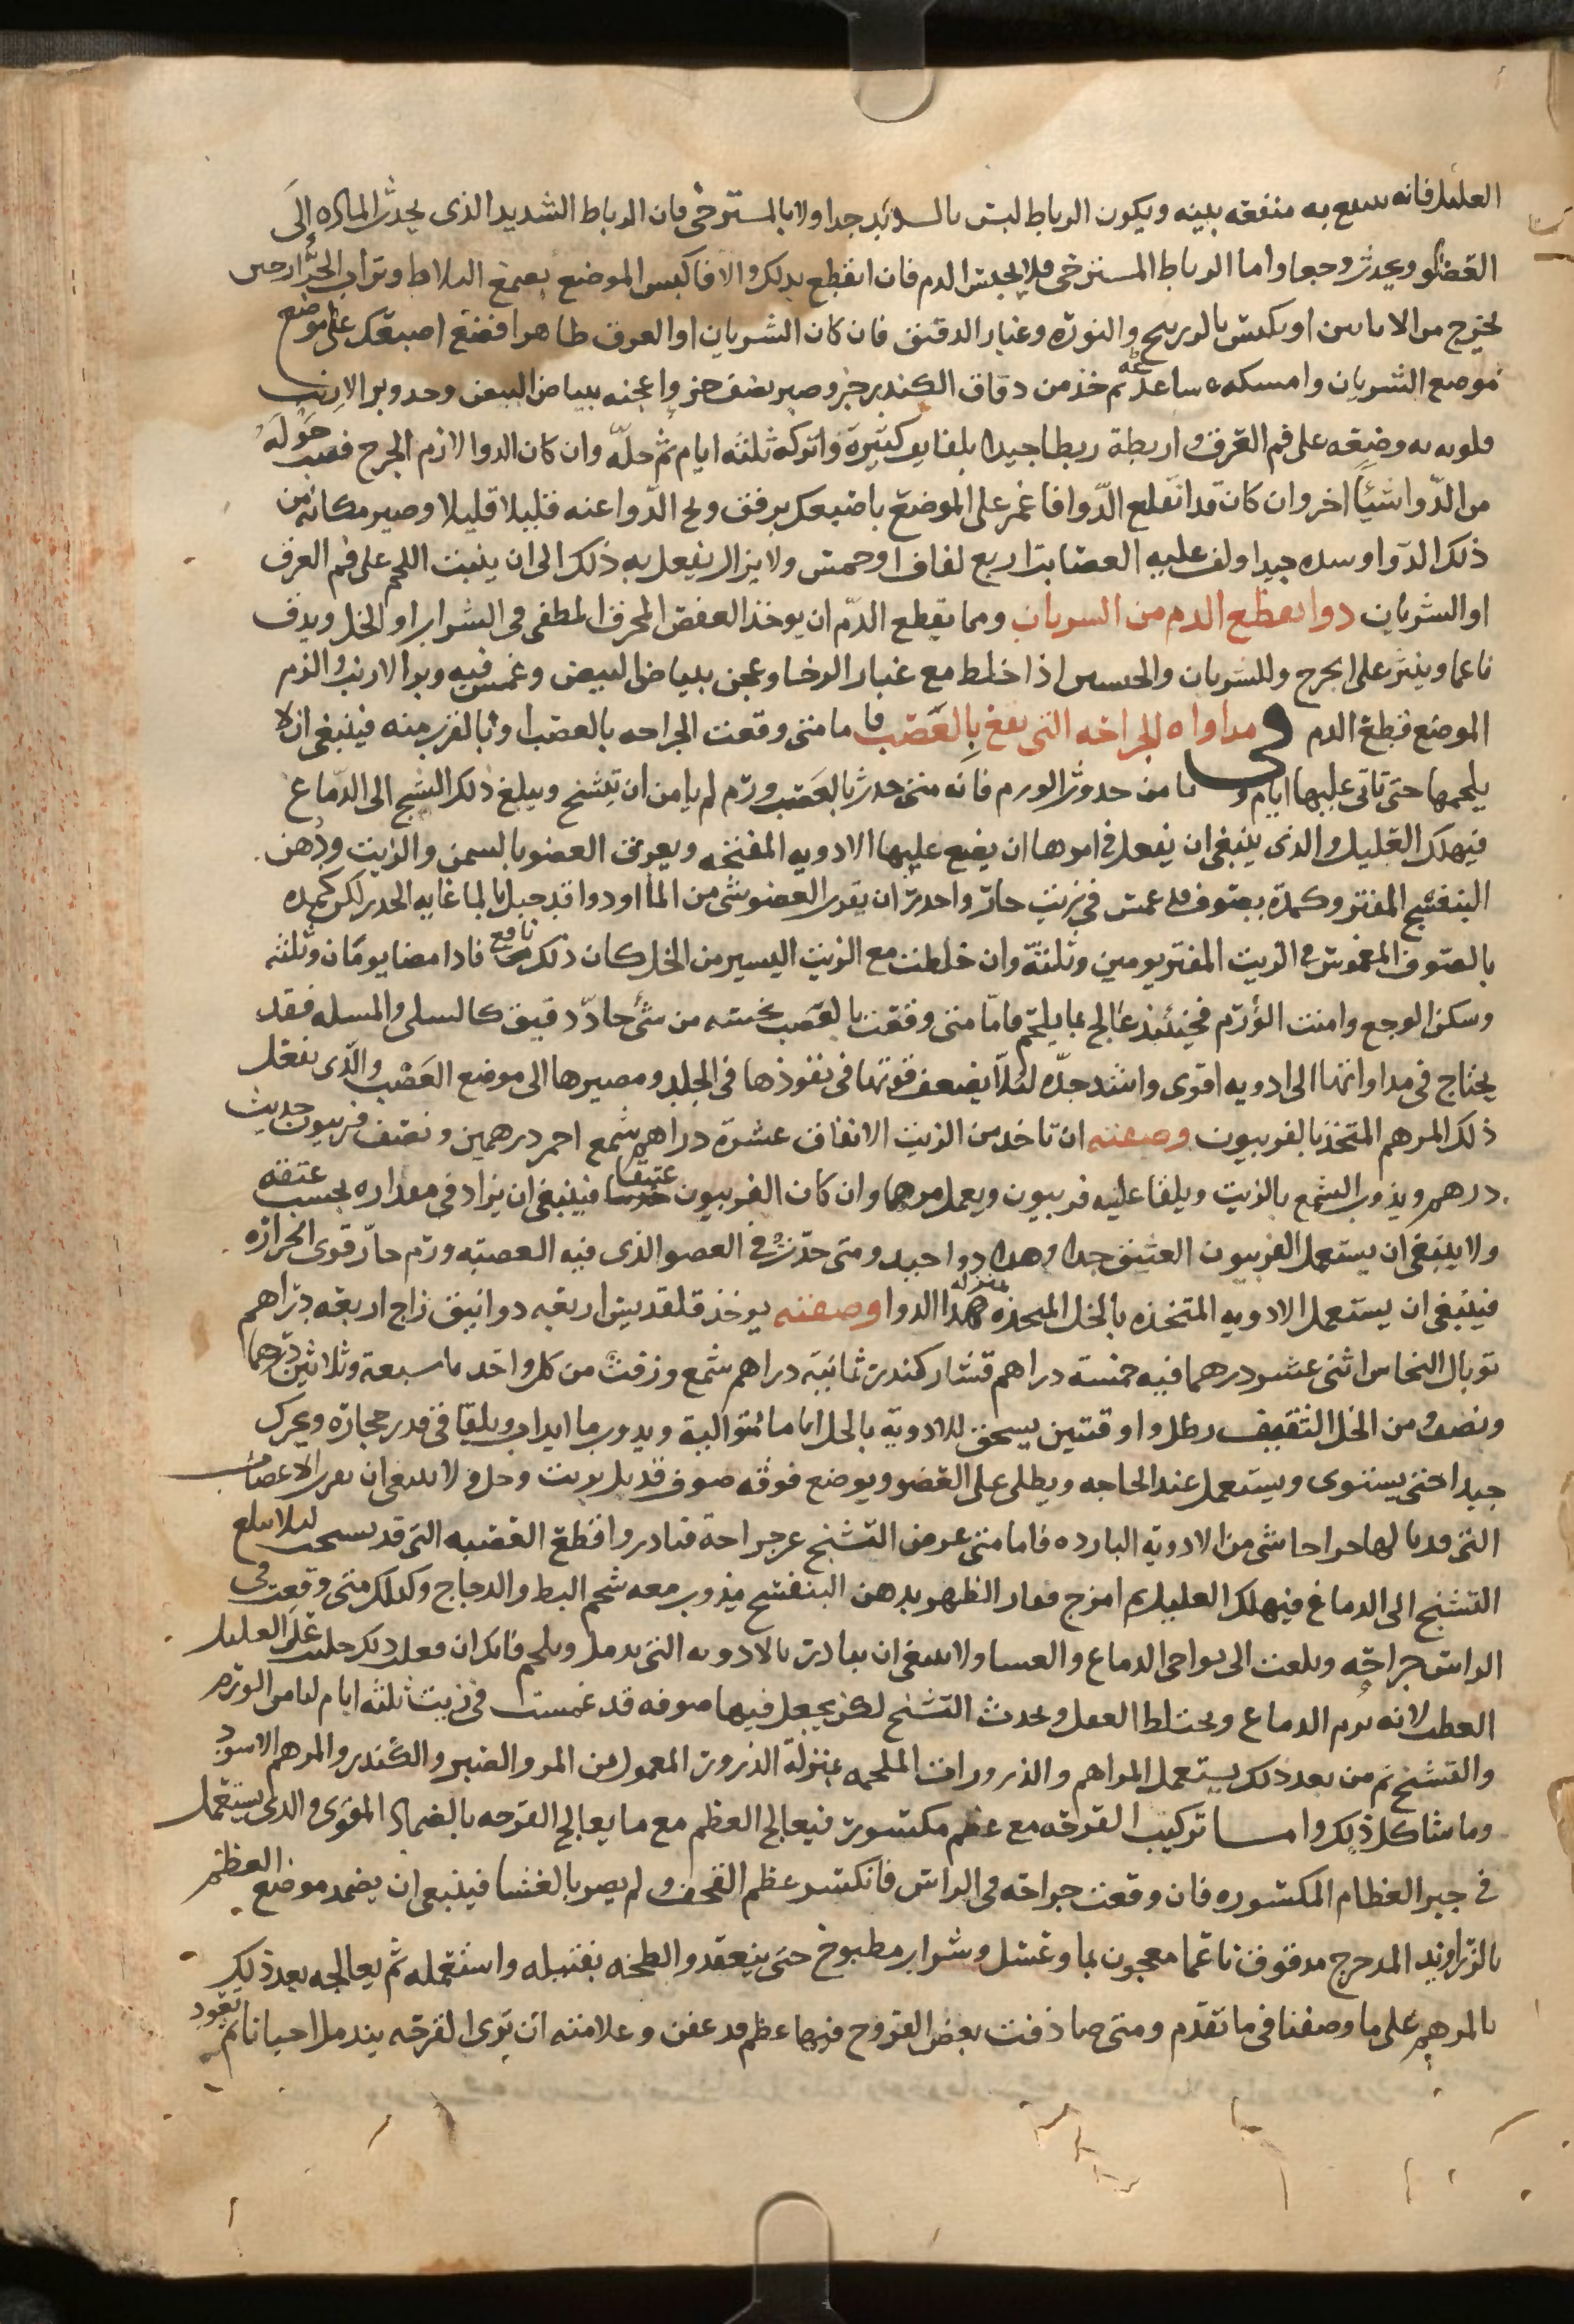 العليل فانه ينتفع به منفعه بينه ويكون الرباط ليس بالشديد جدا ولا بالمسترخى فان الرباط الشديد الذى يحدث الماده الى
العضو ويحدث وجعا واما الرباط المسترخى فلا يحبس الدم فان انقطع بذلك والا فاكبس الموضع بصمغ البلاط وتراب الجرار حين
يخرج من الاتاتين او بكلس بالزرنيخ والنوره وغبار الدقيق فان كان الشريان او العرق ظاهرا فضع اصبعك على موضع
موضع الشريان وامسكه ساعه ثم خذ من دقاق الكندر جز وصبر نصف جز واعجنه ببياض البيض وخذ وبر الارنب
فلوثه به وضعه على فم العرق واربطه ربطا جيدا بلفايف كثيرة واتركه ثلثه ايام ثم حله وان كان الدوا لازم الجرح فضع حوله
من الدوا شيئا اخر وان كان قد انقلع الدوا فاغمز على الموضع باصبعك برفق ونح الدوا عنه قليلا قليلا وصير مكانه من
ذلك الدوا وشده جيدا ولف عليه العصابة اربع لفاف او خمس ولا يزال يفعل به ذلك الى ان ينبت اللحم على فم العرق
او الشريان دوا يقطع الدم من الشريان ومما يقطع الدم ان يوخذ العفص المحرق المطفى فى الشراب او الخل ويدق
ناعما وينثر على الجرح وللشريان والجبسين اذا خلط مع غبار الرحا وعجن ببياض البيض وغمس فيه وبر الارنب والزم
الموضع قطع الدم فى مداواه الجراحه التى تقع بالعصب فاما متى وقعت الجراحه بالعصب او بالقرب منه فينبغى ان لا
يلحمها حتى تاتى عليها ايام و تامن حدوث الورم فانه متى حدث بالعصب ورم لم يامن ان يتشنج ويبلغ ذلك التشنج الى الدماغ
فيهلك العليل والذى ينبغى ان يفعل فى امرها ان يضع عليها الادويه المفتحه ويعرق العضو بالسمن والزيت ودهن
البنفسج المفتر وكمده بصوف قد غمس فى زيت حار واحذر ان يقرب العضو شى من الما او دوا قد جبل بالما غايه الحذر لكن كمده
بالصوف المغموس فى الزيت المفتر يومين وثلثة وان خلطت مع الزيت اليسير من الخل كان ذلك نافع فاذا مضا يومان وثلثه
وسكن الوجع وامنت الورم فحينئذ عالج بما يلحم فاما متى وقعت بالعصب نخسه من شئ حاد دقيق كالسلى والمسله فقد
يحتاج فى مداواتها الى ادويه اقوى واشد حده لئلا يضعف قوتها فى نفوذها فى الجلد ومصيرها الى موضع العصب والذى يفعل
ذلك المرهم المتخذ بالفربيون وصفته ان تاخذ من الزيت الانفاق عشرة دراهم شمع احمر درهمين ونصف فربيون حديث
درهم ويذوب الشمع بالزيت ويلقا عليه فربيون ويعمل مرهما وان كان الفربيون عتيقا فينبغى ان يزاد فى مقداره بحسب عتقه
ولا ينبغى ان يستعمل الفربيون العتيق جدا وهذا دوا جيد ومتى حدث فى العضو الذى فيه العصبه ورم حار قوى الحراره
فينبغى ان يستعمل الادويه المتخذه بالخل بمنزله هذا الدوا وصفته يوخذ قلقديس اربعه دوانيق زاج اربعه دراهم
توبال النحاس اثنى عشر درهما فيه خمسه دراهم قشار كندر ثمانية دراهم شمع وزفت من كل واحد ما سبعة وثلاثين درهما
ونصف من الخل الثقيف رطل واوقتين يسحق الادوية بالخل اياما متوالية ويذوب ما ايذاب ويلقا فى قدر حجارة ويحرك
جيدا حتى يستوى ويستعمل عند الحاجه ويطلى على العضو ويوضع فوقه صوف قد بل بزيت وخل ولا ينبغى ان يقرب الاعصاب
التى قد نالها جراحا شى من الادوية البارده فاما متى عرض التشنج عن جراحة فبادر واقطع العصبه التى قد تشنجت ليلا يبلغ
التشنج الى الدماغ فيهلك العليل ثم امزج فقار الظهر بدهن البنفسج يذوب معه شحم البط والدجاج وكذلك متى وقعت فى
الراس جراحه وبلغت الى نواحى الدماغ والغشا ولا ينبغى ان يبادر بالادويه التى يدمل ويلحم فانك ان فعلت ذلك جلبت على العليل
العطب لانه يرم الدماغ ويختلط العقل ويحدث التشنج لكن يجعل فيها صوفه قد غمست فى زيت ثلثه ايام ليامن الورم
والتشنج ثم من بعد ذلك يستعمل المراهم والذرورات الملحمه بمنزلة الذرور المعمول من المر والصبر والكندر والمرهم الاسود
وما شاكل ذلك واما تركيب القرحه مع عظم مكسور فيعالج العظم مع ما يعالج القرحه بالضماد المقوى والذى يستعمل
فى جبر العظام المكسوره فان وقعت جراحه فى الراس فانكسر عظم القحف ولم يصر بالغشا فينبغى ان يضمد موضع العظم
بالزراوند المدحرج مدقوق ناعما معجون بما وعسل وشراب مطبوخ حتى ينعقد والطخه بفتيله واستعمله ثم يعالجه بعد ذلك
بالمرهم على ما وصفنا فى ما تقدم ومتى صادفت بعض القروح فيها عظم قد عفن وعلامته ان ترى القرحه يندمل احيانا ثم تعود